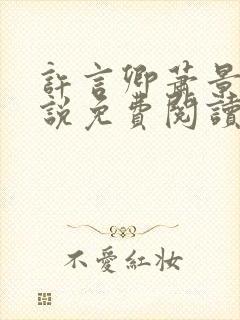 許言卿蕭景
說免費閱讀
不愛紅妝